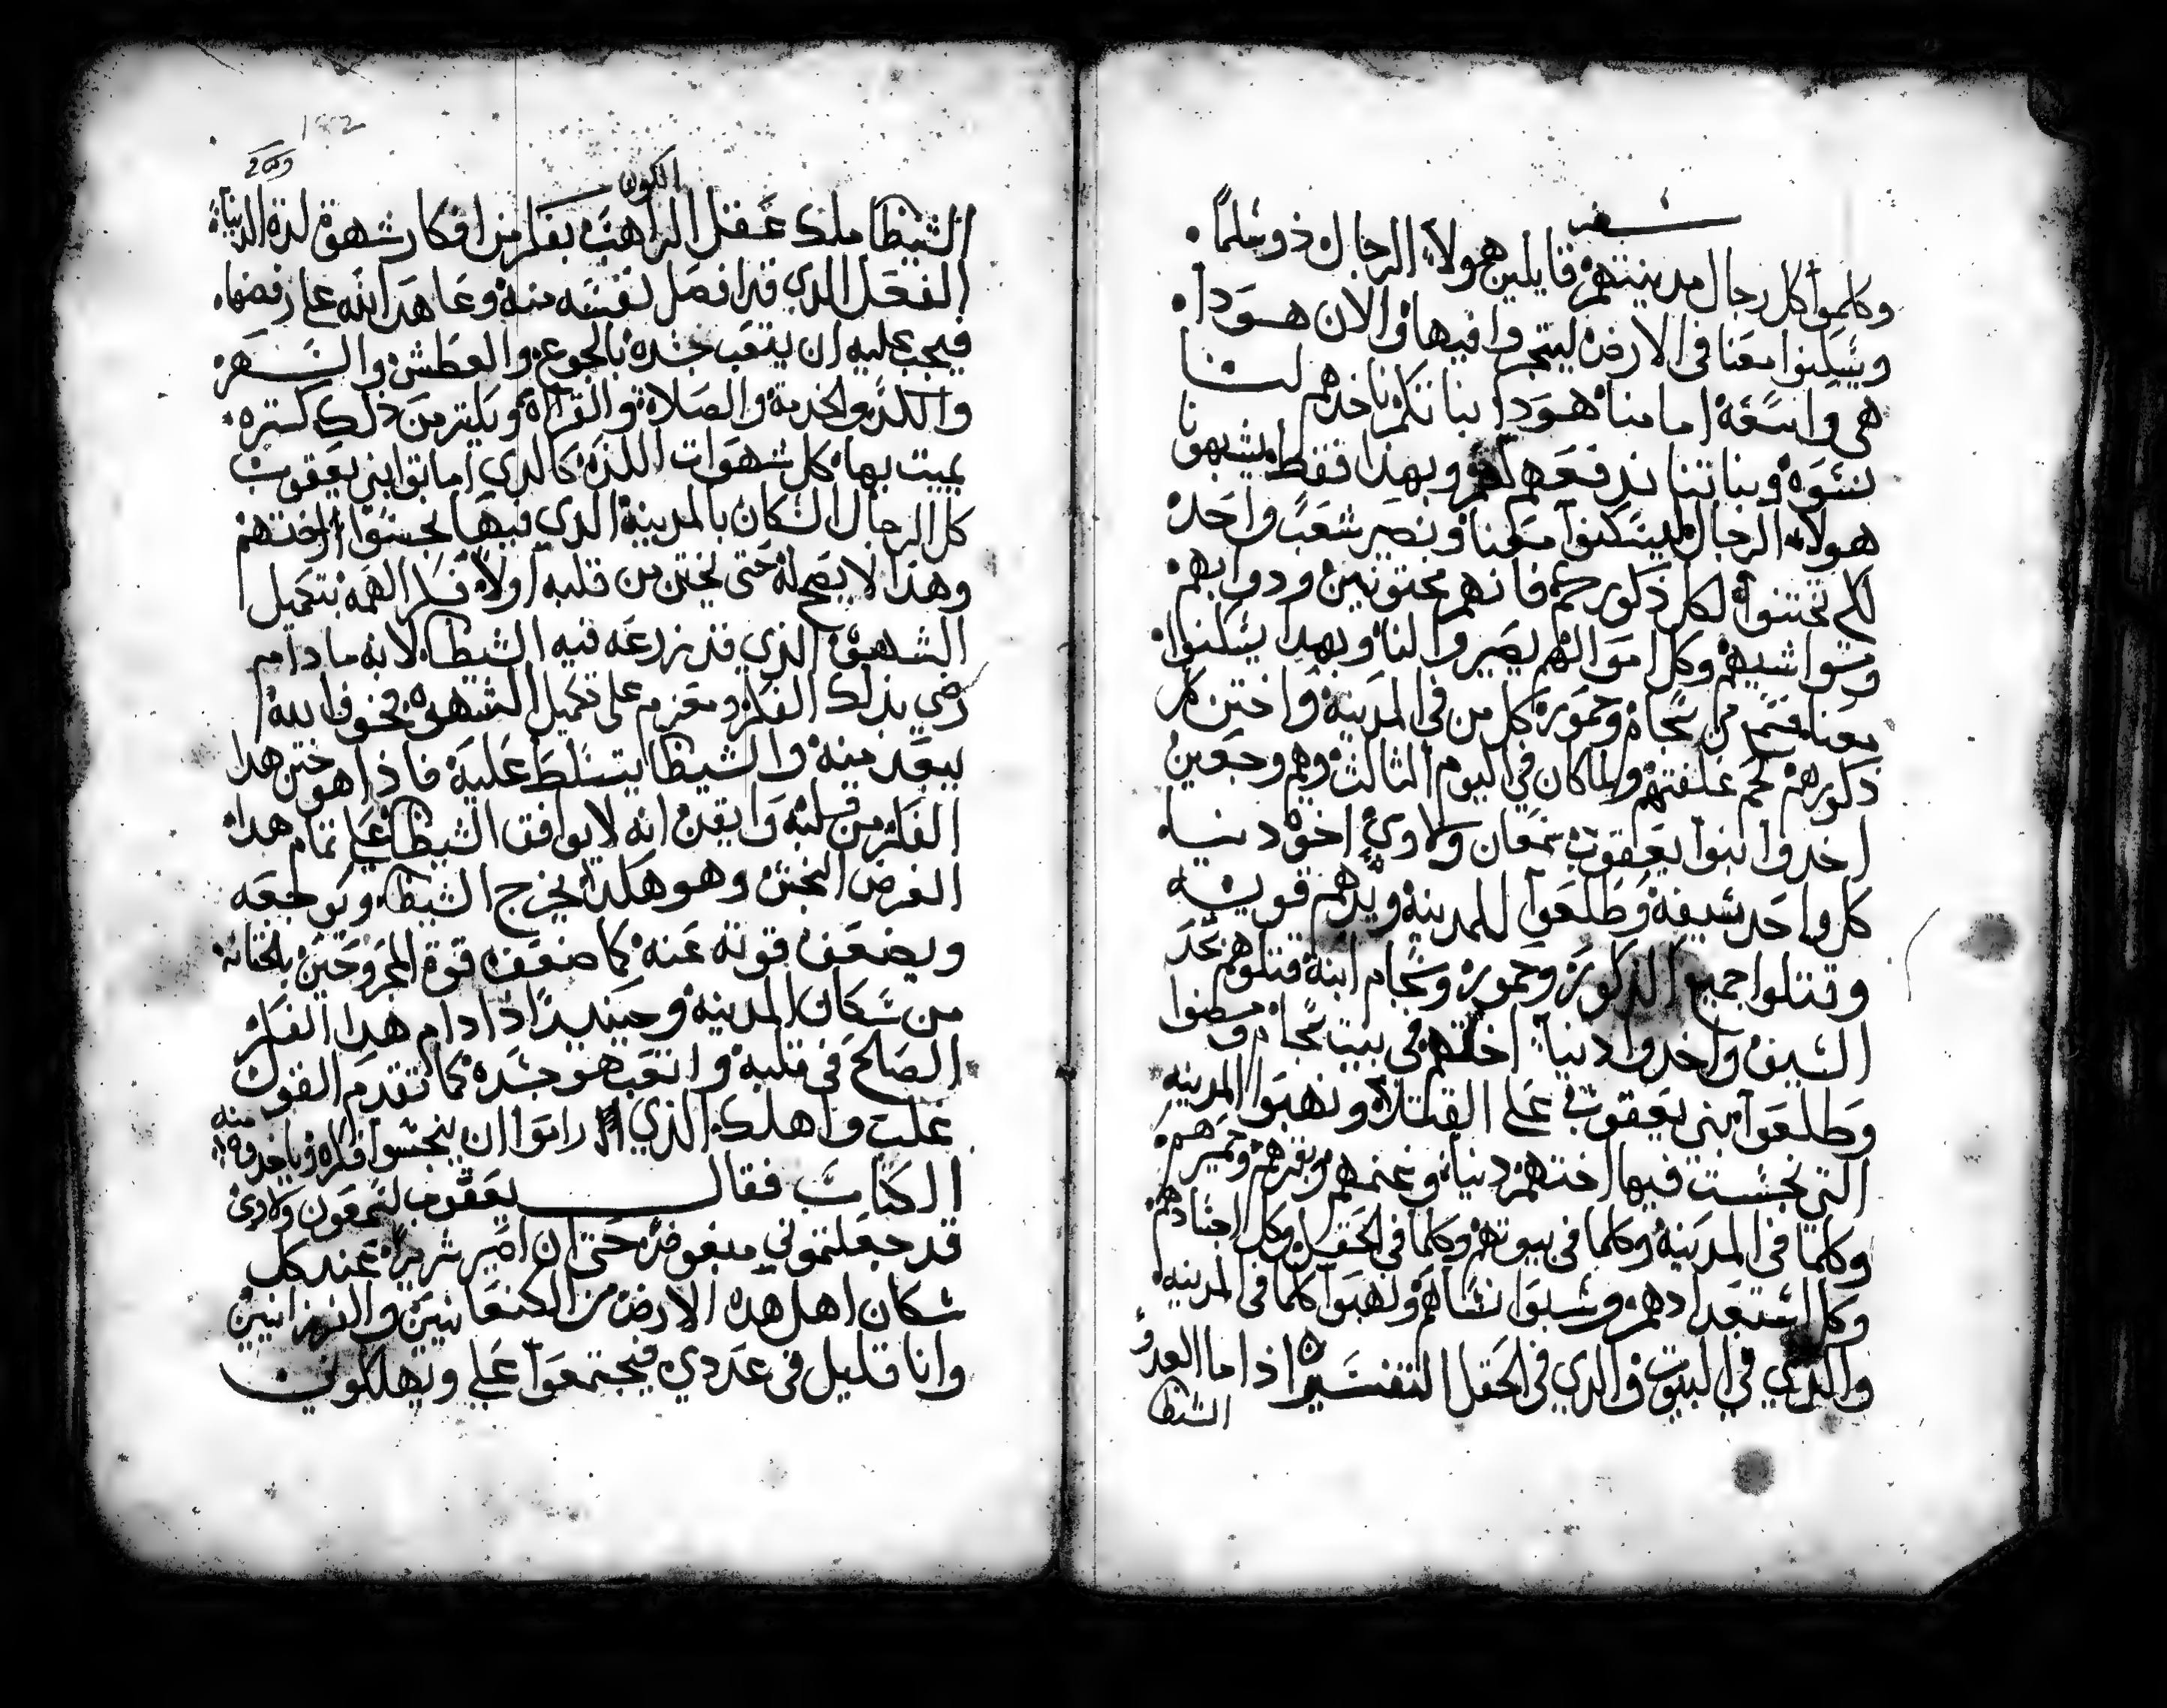 سفر
وكلموا كل رجال مدينتهم قايلين هولاء الرجال ذو سلما
ويسكنوا معنا فى الارض ليتجروا فيها والان هوذا
هى واسعة امامنا هوذا بناتكم ناخدهم لنا
نسوة وبناتنا ندفعهم لهم وبهذا فقط يشبهونا
هولاء الرجال ليسكنوا معنا ونصير شعب واحد
لكم تختنوا لكل ذكوركم فانهم مختونين ودوابهم
ومواشيهم وكل اموالهم يصيروا لنا وبهدا يسكنوا
معنا فسمع من شجام وحمور كل من فى المدينة واختن كل
ذكورهم لحم غلفتهم ولما كان في اليوم الثالث وهم وجعين
اخدوا بنوا يعقوب شمعان ولاوي اخوة دنيا
كل واحد سيفة وطلعوا للمدينة ويدهم قويه
وقتلوا جميع الذكور وحمور وشجام ابنة قتلوهم بحد
السيف واخدوا دنيا اختهم فى بيت شجام ومضوا
وطلعوا بنى يعقوب على القتلاء ونهبوا المدينه
التى نجست فيها اختهم دنيا وغنمهم وبقرهم وحميرهم
وكلما فى المدينة وكلما فى بيوتهم وكلما فى الحقل وكل اجسادهم
وكل استعدادهم وسبوا نساهم ونهبوا كلما فى المدينه
والدي في البيوت والدي فى الحقل التفسير اذا ما العدو
الشيطا
الكون
الشيطا ملك عقل الراهب بفكر من افكار شهوة لدة الدنيا
الفعل الذي قد افصل نفسه منه وعاهد الله على رفضها
فيجب عليه ان يتعب جسده بالجوع والعطش والسهر
والكد والخدمة والصلاة والقراة ويكثر من ذلك كتره
يميت بها كل شهوات اللذه كالذي اماتوا بنى يعقوب
كل الرجال السكان بالمدينة الذي فيها نجسوا اختهم
وهذا لا يصح له حتى يختن من قلبه اولا فكر الهمه بتكميل
الشهوة الذي قد زرعه فيه الشيطا لانه مادام
رضي بذلك الفكر ومعزم على تكميل الشهوة فخوف الله
يبعد منه والشيطا يتسلط عليه فاذا هو ختن هدا
الفكر من قلبه وايقن انه لا يوافق الشيطا على تمام هدا
الغرض النجس وهو هكدا يخرج الشيطا ويوجعه
ويضعف قوته عنه كما ضعف قوة المجروحين بالختانه
من سكان المدينه وحينيد اذا دام هدا الفكر
الصالح فى قلبه واتعب هو جسده كما تقدم القول
غلب واهلك الذي راموا ان ينجسوا فكره وياخدوه منه
الكتاب فقال يعقوب لشمعون ولاوى
قد جعلتموني مبغوضه حتى ان اصير شريرا عند كل
سكان اهل هده الارض من الكنعانيين والفرزانيين
وانا قليل فى عددي فيجتمعوا على ويهلكوني